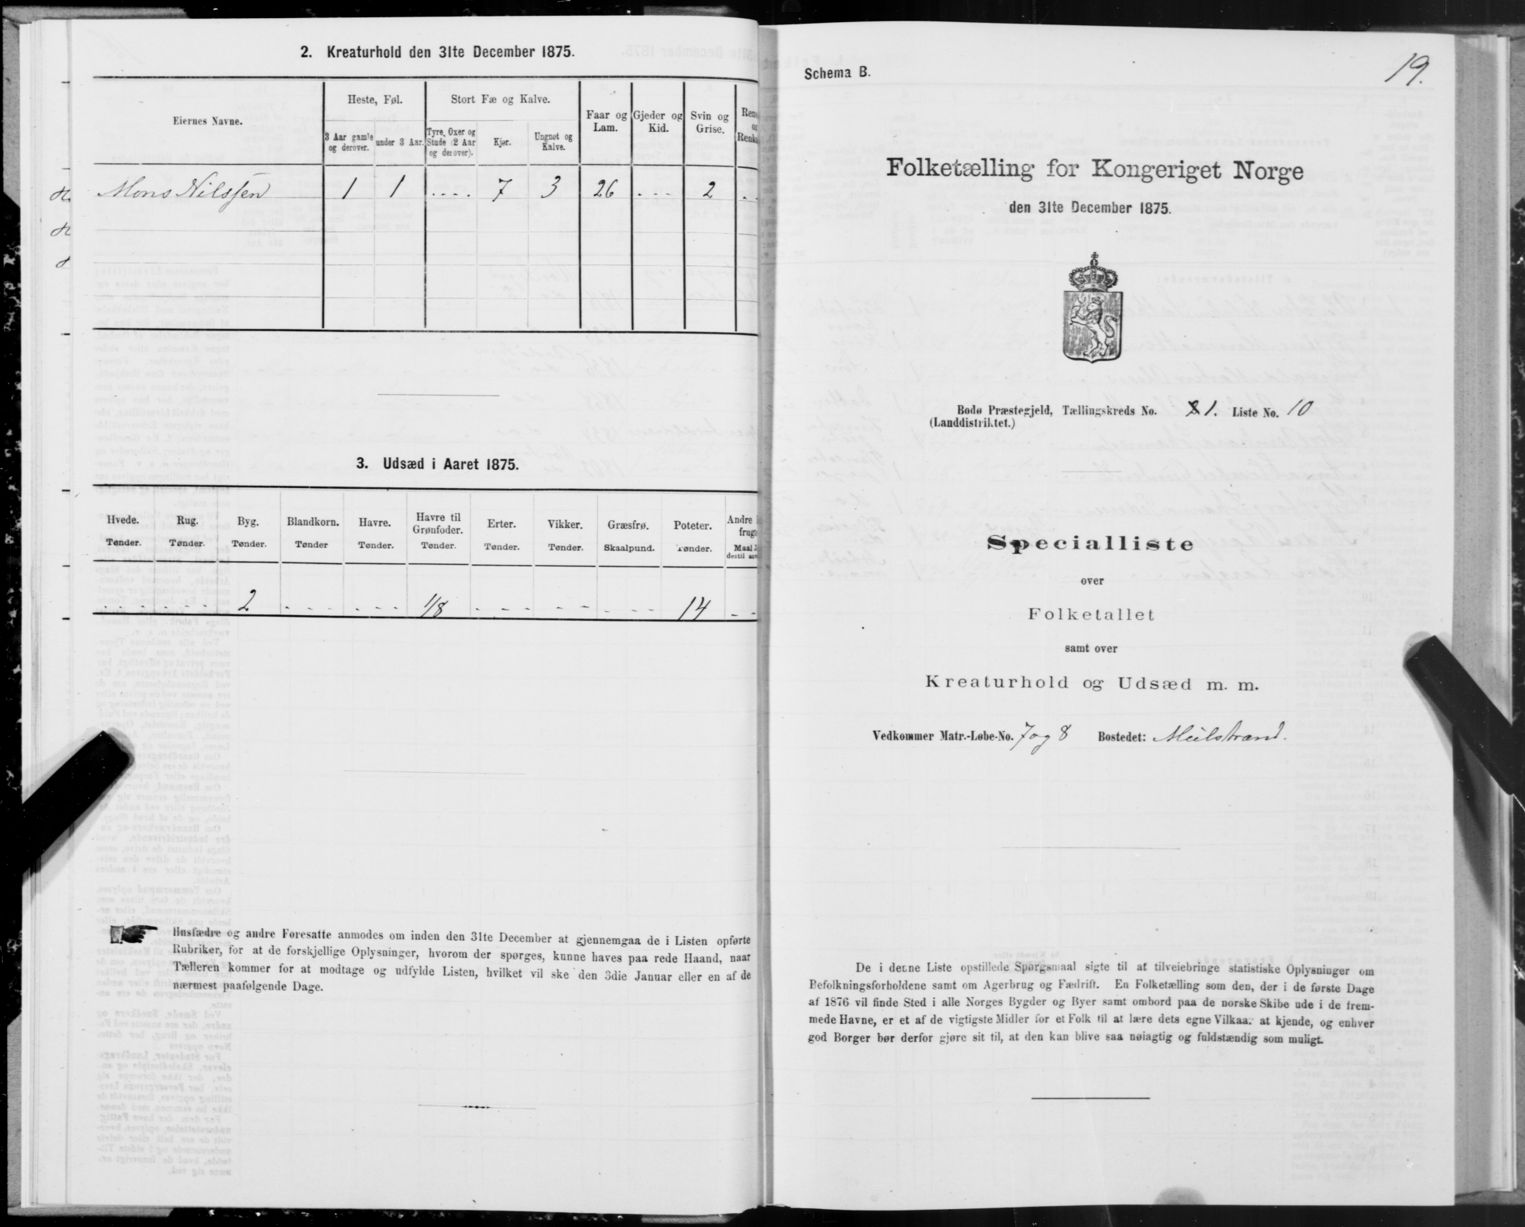 2. Kreaturhold den 31te December 1875.
Eiernes Navne.
Heste, Føl.
Stort Fæ og Kalve.
Faar og Lam.
Gjeder og Kid.
Svin og Grise.
3 Aar gamle og derover.
under 3 Aar.
Tyre, Oxer og Stude (2 Aar og derover).
Kjør.
Ungnøt og Kalve.
Mons Nilssen 1 1 .... 7 3 26 ... 2 ..
3. Udsæd i Aaret 1875.
Hvede. Rug. Byg. Blandkorn. Havre. Havre til Grønfoder. Erter. Vikker. Græsfrø. Poteter. Andre
Tønder. Tønder. Tønder. Tønder Tønder. Tønder. Tønder. Tønder. Skaalpund. Tønder. Maal
2 1/8 14
Husfædre og andre Foresatte anmodes om inden den 31te December at gjennemgaa de i Listen opførte
Rubriker, for at de forskjellige Oplysninger, hvorom der spørges, kunne haves paa rede Haand, naar
Tælleren kommer for at modtage og udfylde Listen, hvilket vil ske den 3die Januar eller en af de
nærmest paafølgende Dage.
19.
Schema B.
Folketælling for Kongeriget Norge
den 31te December 1875.
Bodø Præstegjeld, Tællingskreds No. 1. Liste No. 10
(Landdistriktet.)
Specialliste
over
Folketallet
samt over
Kreaturhold og Udsæd m. m.
Vedkommer Matr.-Løbe-No. 7 og 8 Bostedet: Meilstrand.
De i denne Liste opstillede Spørgsmaal sigte til at tilveiebringe statistiske Oplysninger om
Befolkningsforholdene samt om Agerbrug og Fædrift. En Folketælling som den, der i de første Dage
af 1876 vil finde Sted i alle Norges Bygder og Byer samt ombord paa de norske Skibe ude i de frem-
mede Havne, er et af de vigtigste Midler for et Folk til at lære dets egne Vilkaar at kjende, og enhver
god Borger bør derfor gjøre sit til, at den kan blive saa nøiagtig og fuldstændig som muligt.